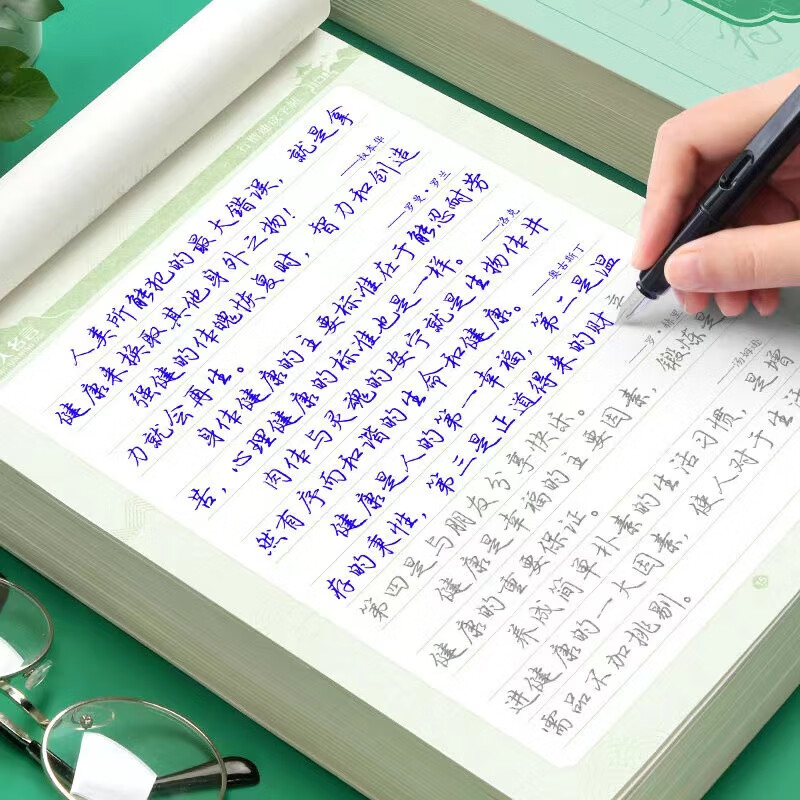 行楷速成字帖
人类所能犯的最大错误，就是拿
健康来换取其他身外之物！
——叔本华
强健的体魄恢复时，智力和创造
力就会再生。
——罗曼·罗兰
身体健康的主要标准在于能忍耐劳
苦，心理健康的标准也是一样。
——洛克
肉体与灵魂的安宁就是生物体井
然有序而和谐的生命和健康。
——奥古斯丁
健康是人的第一幸福，第二是温
存的秉性，第三是正道得来的财
第四是与朋友分享快乐。
——罗·赫里
健康是幸福的主要因素，锻炼是
健康的重要保证。
——汤姆逊
养成简单朴素的生活习惯，是增
进健康的一大因素，使人对于生活
需品不加挑剔。
人名言
15